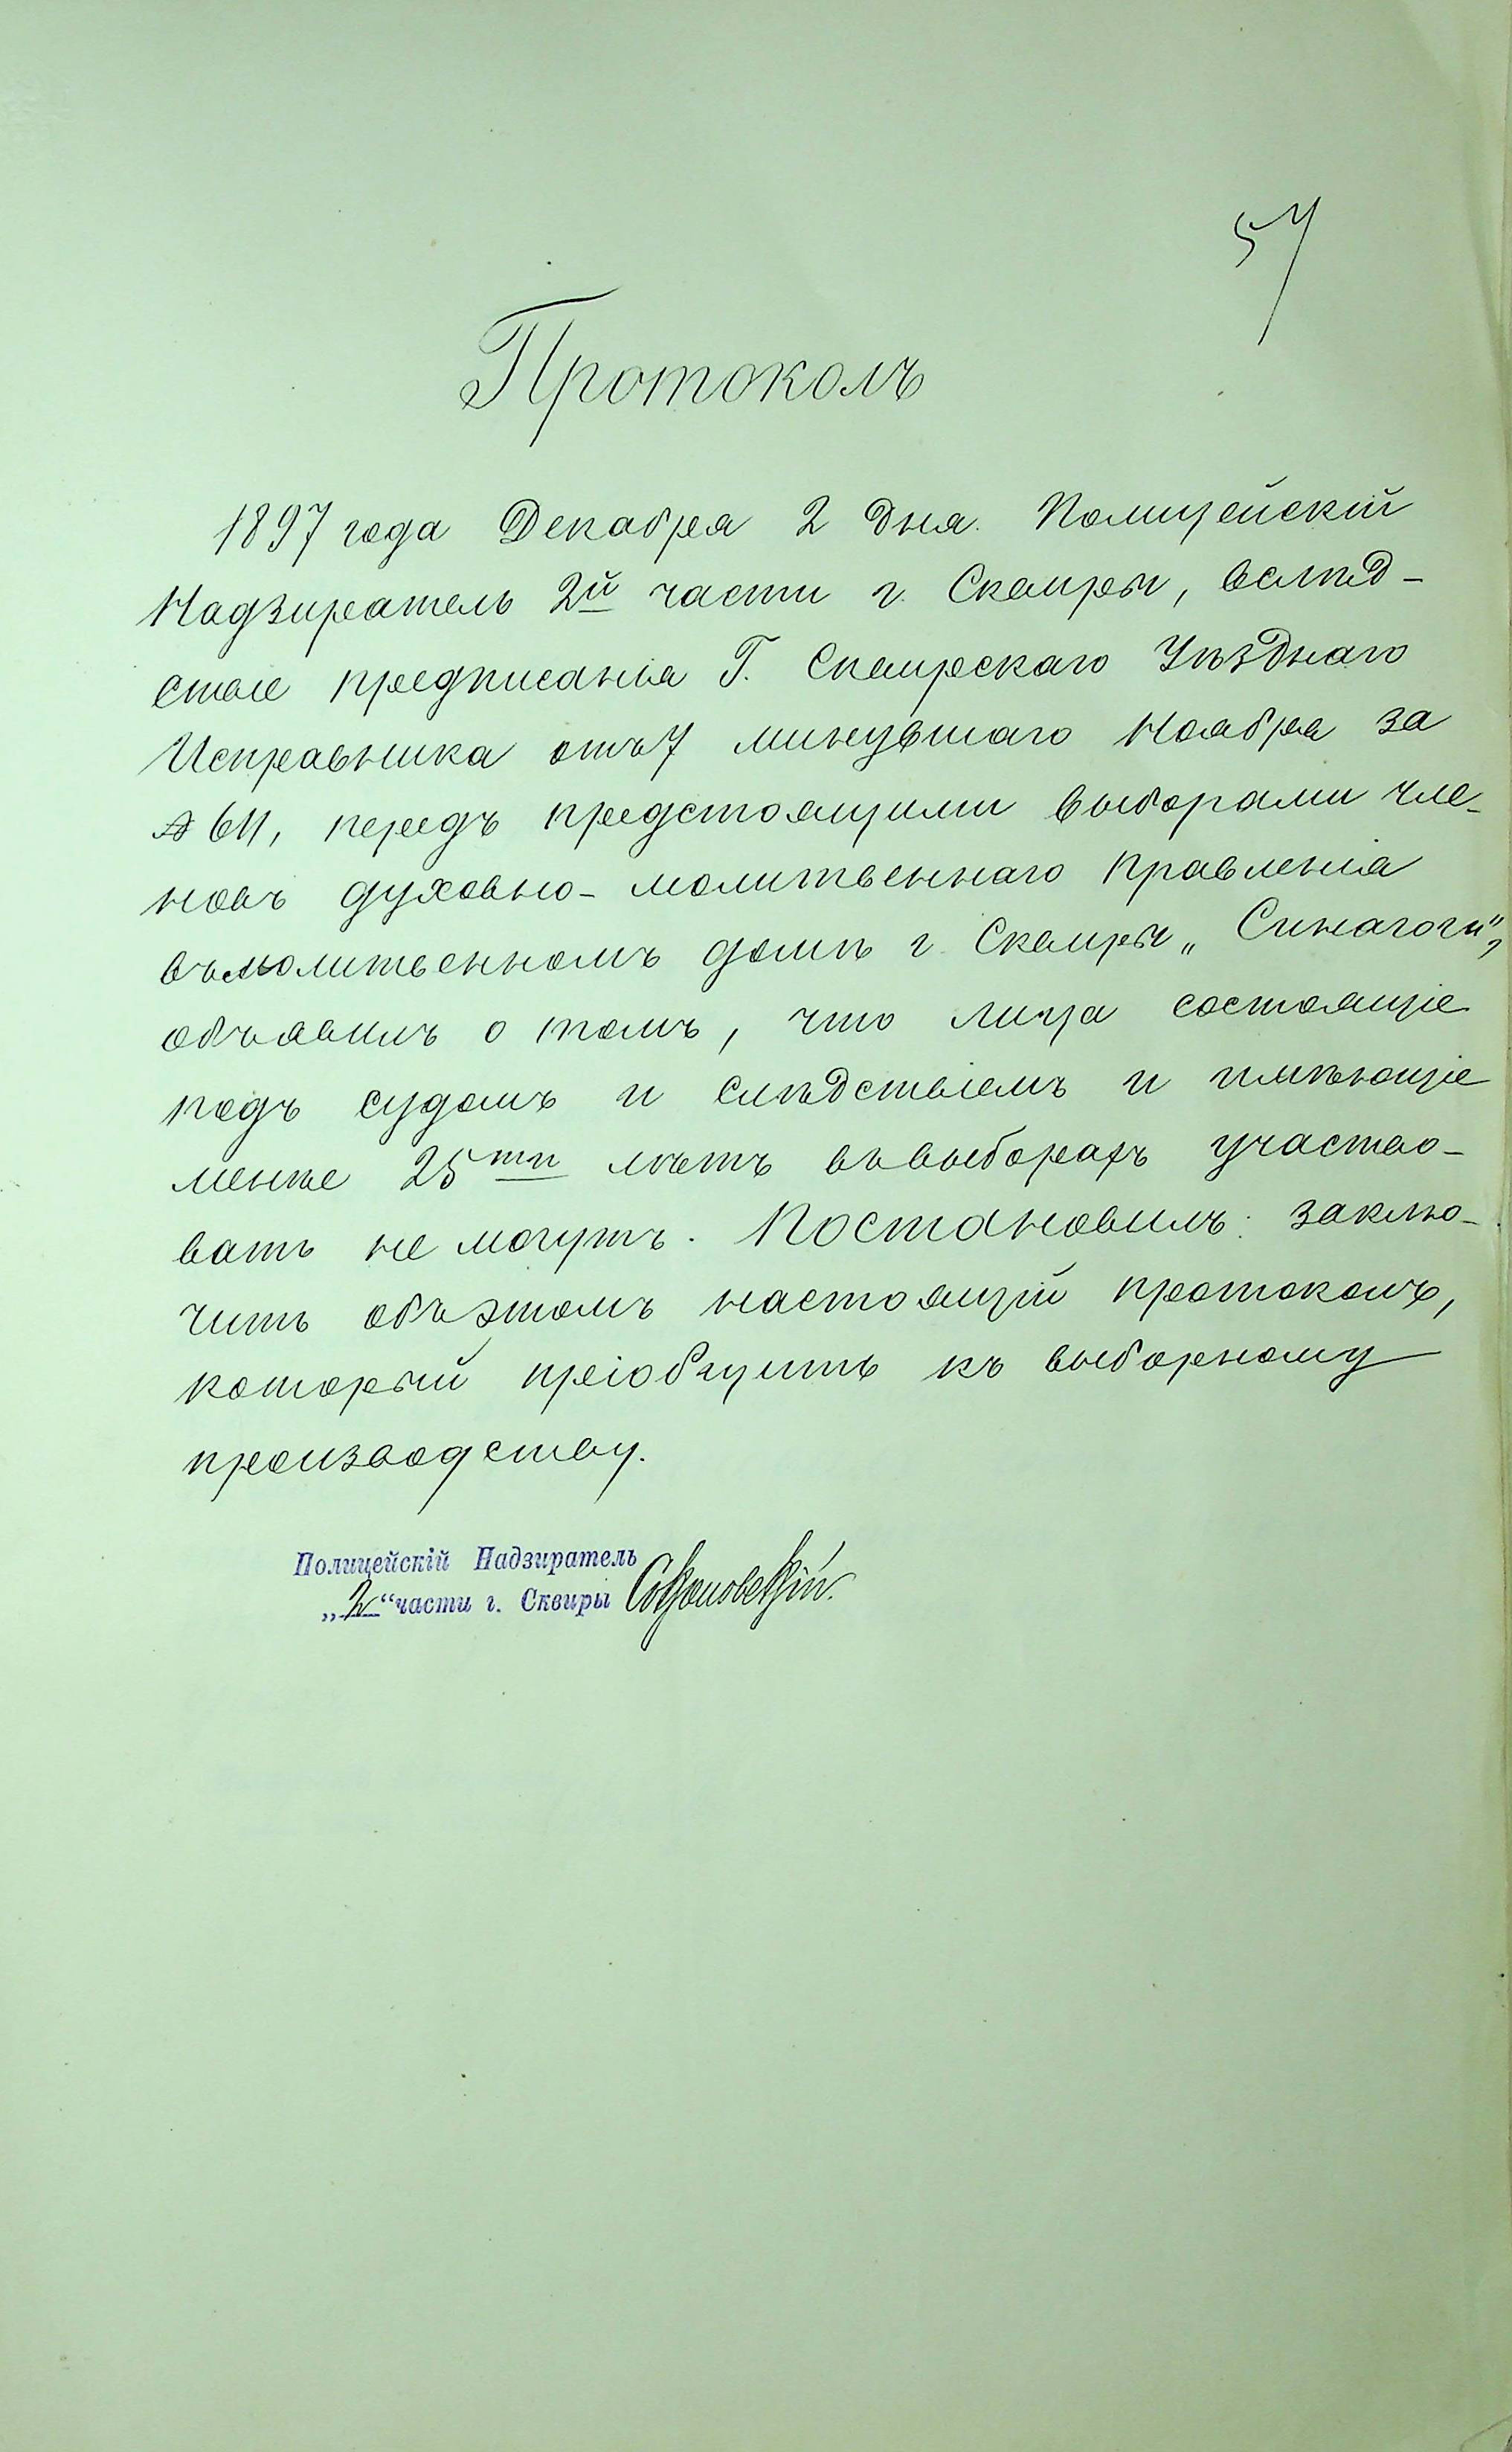 57
Протоколъ
1897 года Декабря 2 дня. Полицейскій
Надзиратель 2й части г. Сквиры, вслѣд-
ствіе предписанія Г. Сквирскаго Уѣзднаго
Исправника отъ 7 минувшаго Ноября за
№ 611, передъ предстоящими выборами чле-
новъ духовно-молитвеннаго правленія
въ молитвенномъ домѣ г. Сквиры „Синагоги",
объявилъ о томъ, что лица состоящіе
подъ судомъ и слѣдствіемъ и имѣющіе
менѣе 25ти лѣтъ въ выборахъ участво-
вать не могутъ. Постановилъ: заклю-
чить объ этомъ настоящій протоколъ,
который пріобщить къ выборному
производству.
Полицейскій Надзиратель
„2" части г. Сквиры